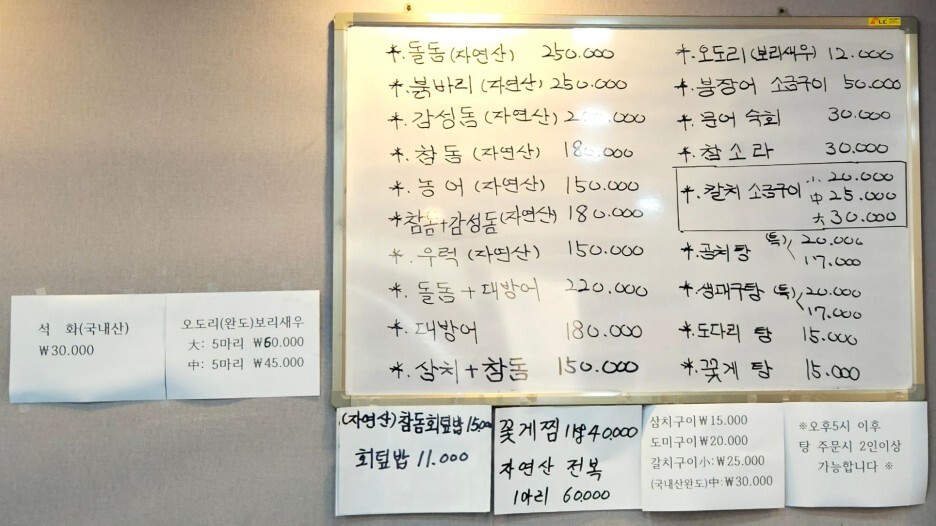 *.돌돔(자연산) 250.000
*.붉바리(자연산) 250.000
*.감성돔(자연산) 2 0.000
*.참돔(자연산) 180.000
*.농어(자연산) 150.000
*.참돔+감성돔(자연산) 180.000
*.우럭(자연산) 150.000
*.돌돔+대방어 220.000
*.대방어 180.000
*.삼치+참돔 150.000
*.오도리(보리새우) 12.000
*.붕장어 소금구이 50.000
*.문어 숙회 30.000
*.참소라 30.000
*.칼치 소금구이 小 20.000
中 25.000
大 30.000
*.곰치탕 (특) 20.000
17.000
*.생대구탕 (특) 20.000
17.000
*.도다리 탕 15.000
*.꽃게 탕 15.000
석 화(국내산)
₩30.000
오도리(완도)보리새우
大: 5마리 ₩60.000
中: 5마리 ₩45.000
(자연산)참돔회덮밥 15,000
회덮밥 11.000
꽃게찜 1kg 40,000
자연산 전복
1마리 60,000
삼치구이 ₩15.000
도미구이 ₩20.000
갈치구이小: ₩25.000
(국내산완도)中: ₩30.000
※오후5시 이후
탕 주문시 2인이상
가능합니다 ※